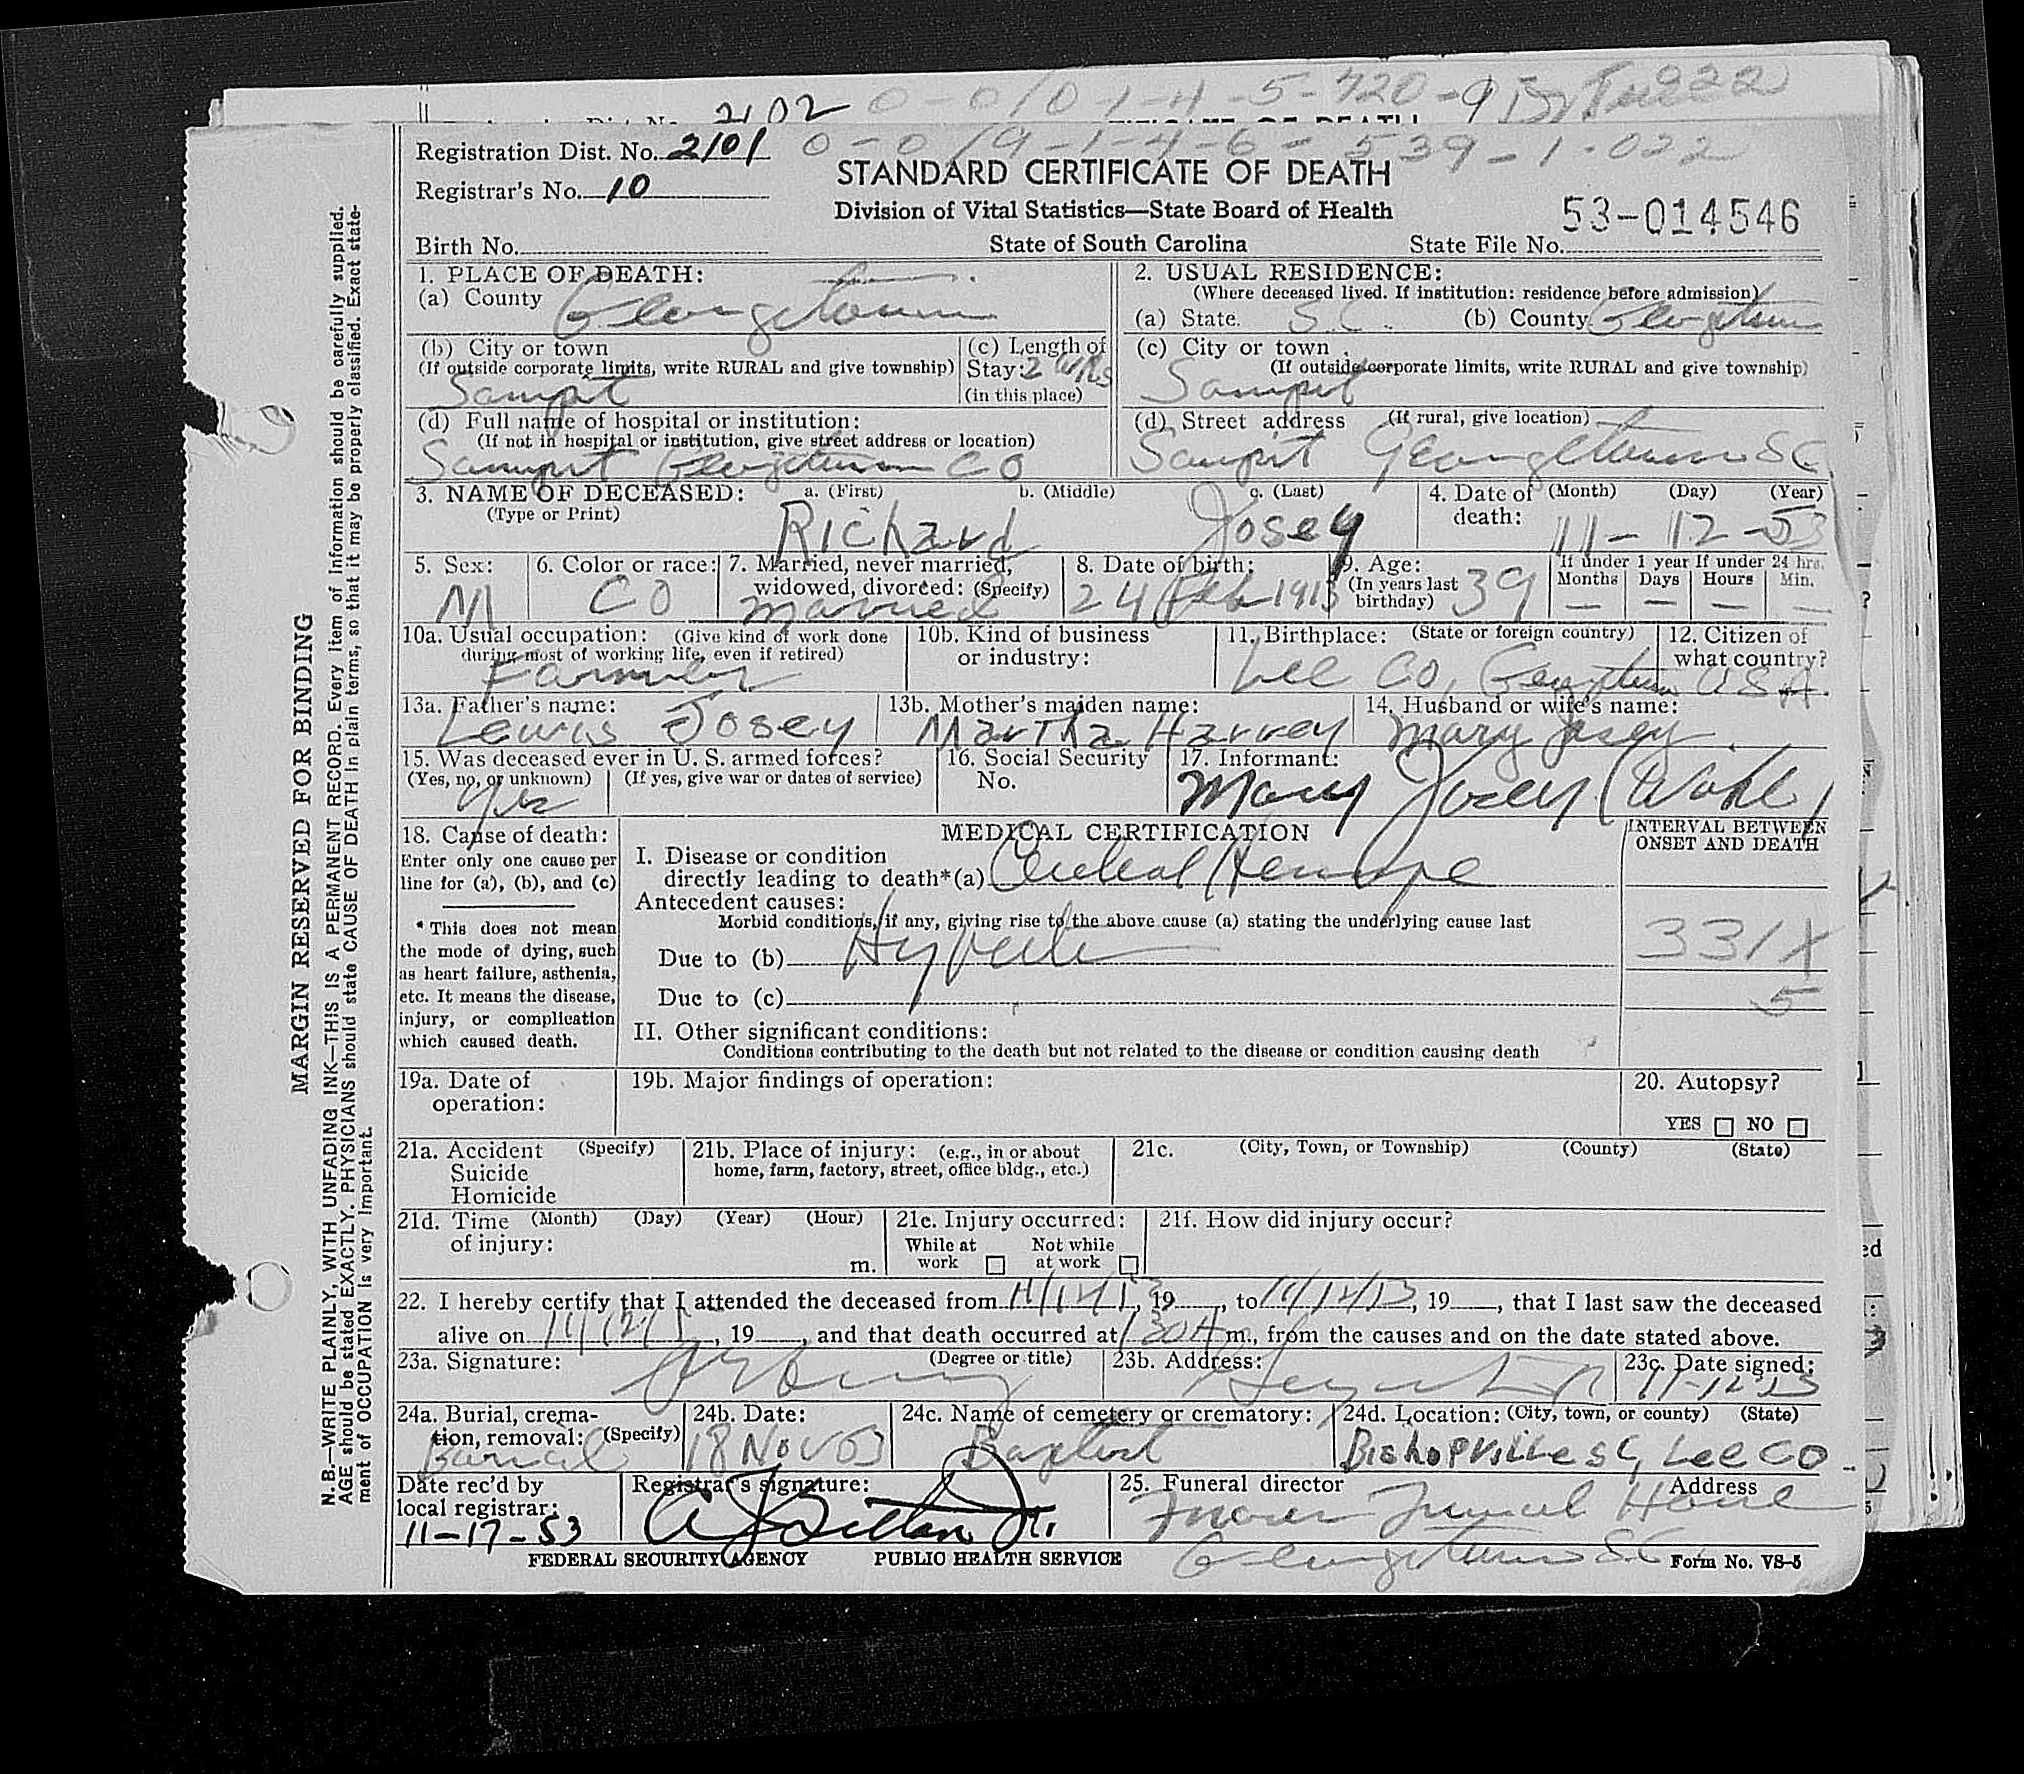 2102 0-0/0-1-4-5-420-9
Registration Dist. No. 2101 0-0/9-1-4-6-539-1-022
STANDARD CERTIFICATE OF DEATH
Registrar's No. 10
Division of Vital Statistics—State Board of Health
53-014546
Birth No. State of South Carolina State File No.
1. PLACE OF DEATH: 2. USUAL RESIDENCE:
(Where deceased lived. If institution: residence before admission)
(a) County Georgetown (a) State. S.C. (b) County Georgetown
(b) City or town (c) Length of (c) City or town
(If outside corporate limits, write RURAL and give township) Stay: 2 (If outside corporate limits, write RURAL and give township)
Sampit (in this place) Sampit
(d) Full name of hospital or institution: (d) Street address (If rural, give location)
(If not in hospital or institution, give street address or location)
Sampit Georgetown CO Sampit Georgetown SC
3. NAME OF DECEASED: a. (First) b. (Middle) c. (Last) 4. Date of (Month) (Day) (Year)
(Type or Print) Richard Josey death: 11-12-53
5. Sex: 6. Color or race: 7. Married, never married, 8. Date of birth: 9. Age: If under 1 year If under 24 hrs.
widowed, divorced: (Specify) (In years last birthday) Months Days Hours Min.
M CO Married 24 Feb 1913 39 — — — —
10a. Usual occupation: (Give kind of work done 10b. Kind of business 11. Birthplace: (State or foreign country) 12. Citizen of
during most of working life, even if retired) or industry: what country?
Farmer Lee Co, Georgetown USA.
13a. Father's name: 13b. Mother's maiden name: 14. Husband or wife's name:
Lewis Josey Martha Harvey Mary Josey
15. Was deceased ever in U. S. armed forces? 16. Social Security 17. Informant:
(Yes, no, or unknown) (If yes, give war or dates of service) No.
Yes Mary Josey
18. Cause of death: MEDICAL CERTIFICATION INTERVAL BETWEEN
ONSET AND DEATH
Enter only one cause per I. Disease or condition
line for (a), (b), and (c) directly leading to death*(a)
Antecedent causes:
* This does not mean Morbid conditions, if any, giving rise to the above cause (a) stating the underlying cause last
the mode of dying, such Due to (b) 331X
as heart failure, asthenia,
etc. It means the disease, Due to (c) 5
injury, or complication
which caused death. II. Other significant conditions:
Conditions contributing to the death but not related to the disease or condition causing death
19a. Date of 19b. Major findings of operation: 20. Autopsy?
operation:
YES NO
21a. Accident (Specify) 21b. Place of injury: (e.g., in or about 21c. (City, Town, or Township) (County) (State)
Suicide home, farm, factory, street, office bldg., etc.)
Homicide
21d. Time (Month) (Day) (Year) (Hour) 21e. Injury occurred: 21f. How did injury occur?
of injury: While at Not while
m. work at work
22. I hereby certify that I attended the deceased from , 19 , to , 19 , that I last saw the deceased
alive on , 19 , and that death occurred at 130 A m., from the causes and on the date stated above.
23a. Signature: (Degree or title) 23b. Address: 23c. Date signed:
24a. Burial, crema- 24b. Date: 24c. Name of cemetery or crematory: 24d. Location: (City, town, or county) (State)
tion, removal: (Specify)
Burial 18 Nov 53 Baptist Bishopville SC, Lee CO
Date rec'd by Registrar's signature: 25. Funeral director Address
local registrar:
11-17-53 Funeral Home
FEDERAL SECURITY AGENCY PUBLIC HEALTH SERVICE Georgetown S.C. Form No. VS-5
MARGIN RESERVED FOR BINDING
N. B.—WRITE PLAINLY, WITH UNFADING INK—THIS IS A PERMANENT RECORD. Every item of information should be carefully supplied.
AGE should be stated EXACTLY. PHYSICIANS should state CAUSE OF DEATH in plain terms, so that it may be properly classified. Exact state-
ment of OCCUPATION is very important.